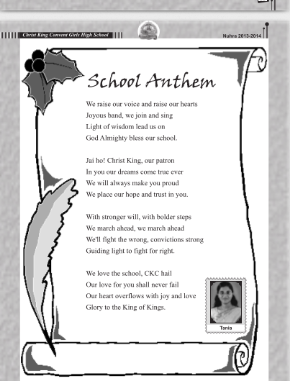 Christ King Convent Girls High School
2013-2014
School Anthem
We raise our voice and raise our hearts
Joyous band, we join and sing
Light of wisdom lead us on
God Almighty bless our school.
Jai ho! Christ King, our patron
In you our dreams come true ever
We will always make you proud
We place our hope and trust in you.
With stronger will, with bolder steps
We march ahead, we march ahead
We'll fight the wrong, convictions strong
Guiding light to fight for right.
We love the school, CKC hail
Our love for you shall never fail
Our heart overflows with joy and love
Glory to the King of Kings.
Tania